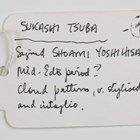 SUKASHI TSUBA
Signed SHOAMI YOSHIHISA
Mid-Edo period?
Cloud pattern, v. stylised
and intaglio.